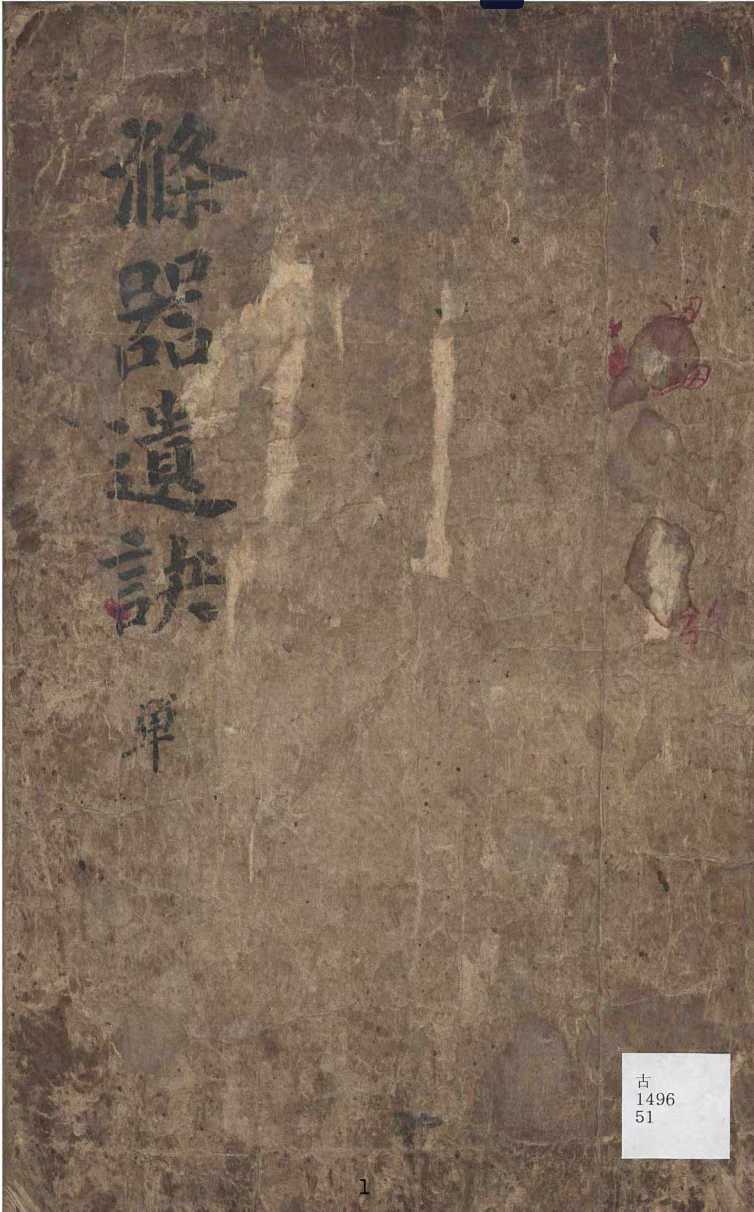 滌器遺訣 單
古
1496
51
1